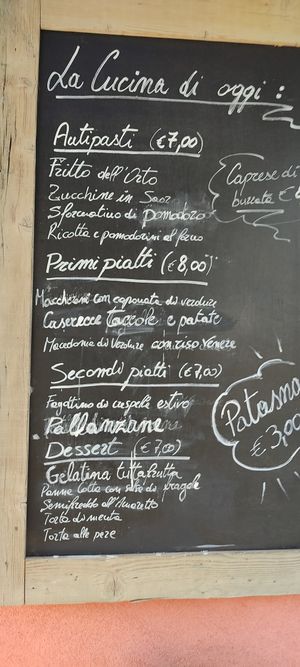 La Cucina di oggi :
Antipasti (€7,00)
Fritto dell'Orto
Zucchine in Saor
Sformatino di pomodoro
Ricotta e pomodorini al forno
Caprese di
burrata €
Primi piatti (€8,00)
Maccheroni con caponata di verdure
Caserecce taccole e patate
Macedonia di Verdure con riso Venere
Secondi piatti (€7,00)
Fagottino di crespelle estivo
Pallanzane
Patasna
€3,00
Dessert (€7,00)
Gelatina tuttafrutta
Panna Cotta con salsa di fragole
Semifreddo all'Amaretto
Torta di menta
Torta alle pere